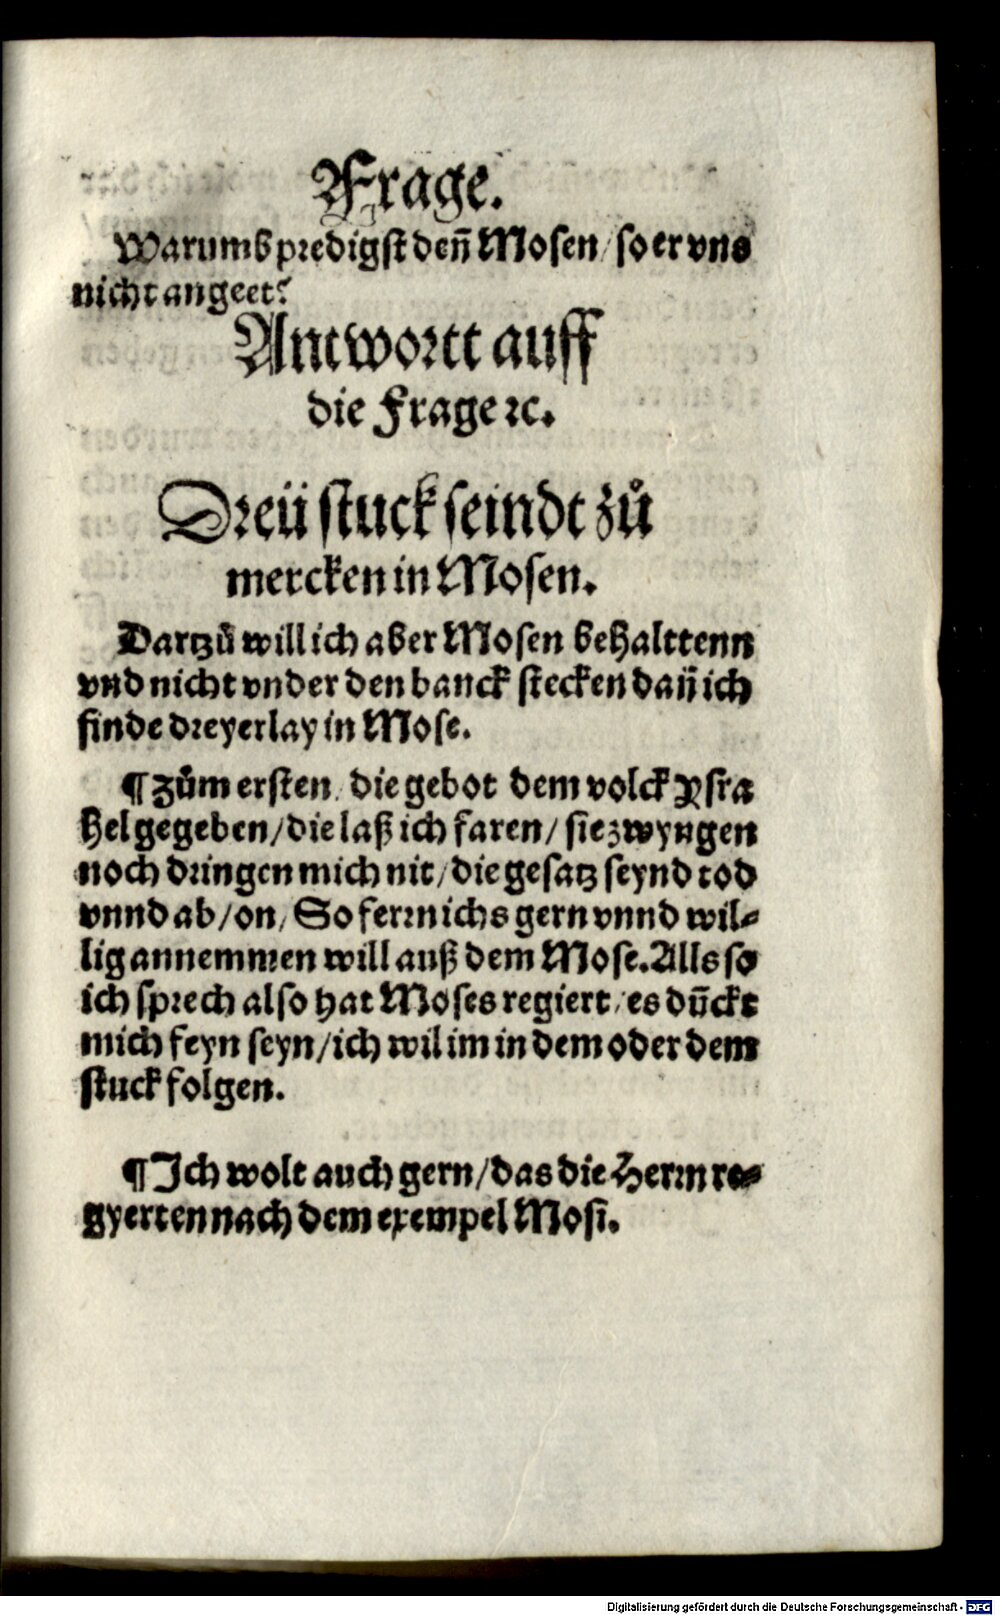 Frage.
Warumb predigst deñ Mosen/ so er vns
nicht angeet?
Antwortt auff
die Frage ꝛc.
Dreü stuck seindt zů
mercken in Mosen.
Dartzů will ich aber Mosen behalttenn
vnd nicht vnder den banck stecken dañ ich
finde dreyerlay in Mose.
¶ Zům ersten/ die gebot dem volck Ysra
hel gegeben/ die laß ich faren/ sie zwyngen
noch dringen mich nit/ die gesatz seynd tod
vnnd ab/ on/ So ferrn ichs gern vnnd wil⸗
lig annemmen will auß dem Mose. Alls so
ich sprech also hat Moses regiert/ es dũckt
mich feyn seyn/ ich wil im in dem oder dem
stuck folgen.
¶ Ich wolt auch gern/ das die Herrn re⸗
gyerten nach dem exempel Mosi.
Digitalisierung gefördert durch die Deutsche Forschungsgemeinschaft - DFG